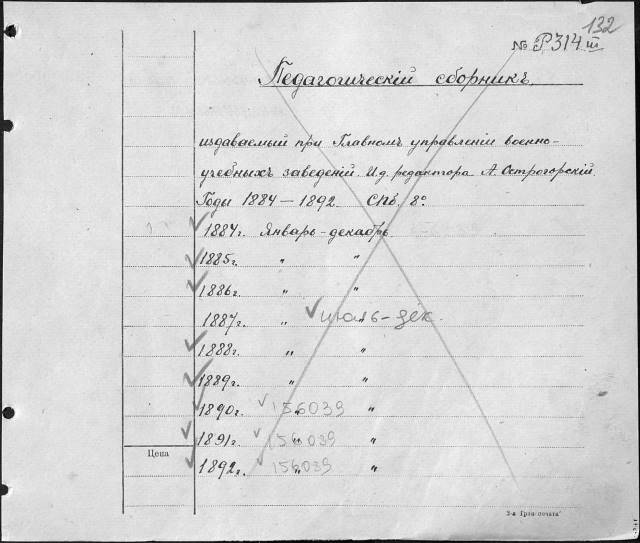 132
№ Р314 III
Педагогическій сборникъ
издаваемый при Главномъ управленіи военно-
учебныхъ заведеній. И.д. редактора А. Острогорскій.
Годы 1884 — 1892. Спб. 8°.
1884г. Январь-декабрь
1885г. " "
1886г. " "
1887г. " " июль-дек.
1888г. " "
1889г. " "
1890г. 156039 " "
1891г. 156039 " "
Цена
1892г. 156039 " "